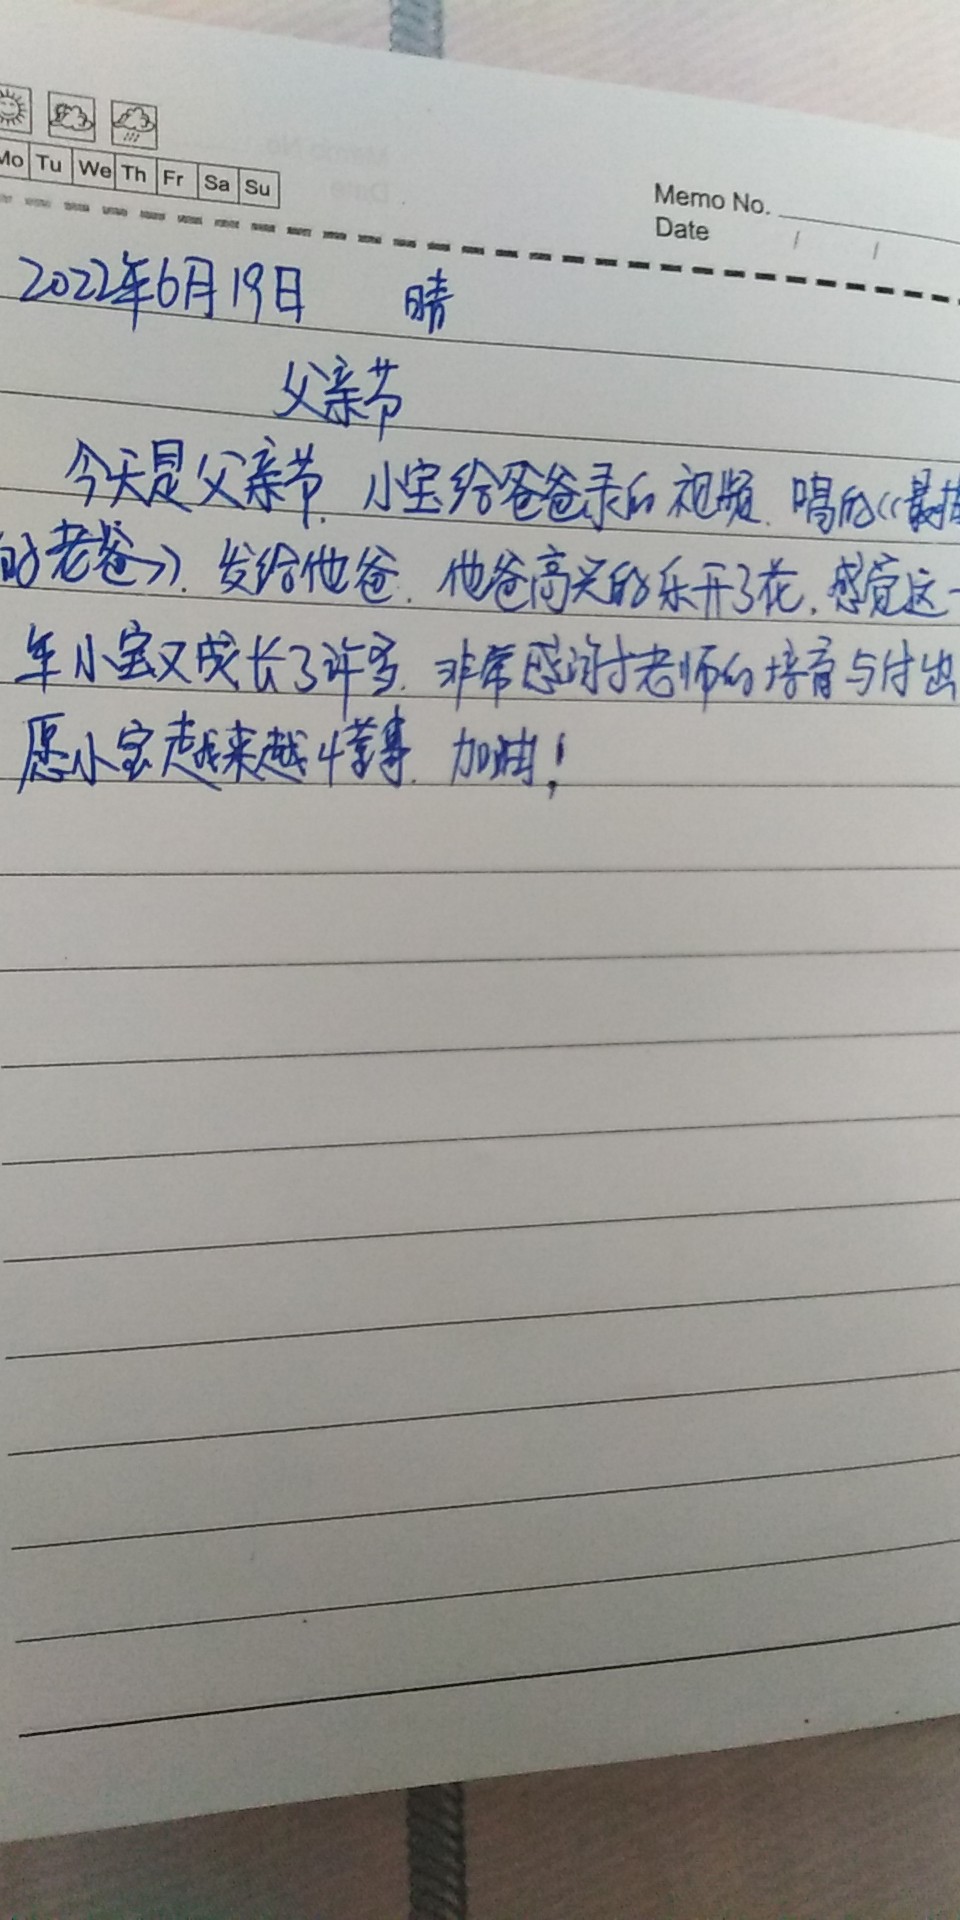 Mo Tu We Th Fr Sa Su
Memo No.
Date / /
2022年6月19日 晴
父亲节
今天是父亲节.小宝给爸爸录的视频.唱的《最
的老爸》.发给他爸.他爸高兴的乐开了花.感觉这一
年小宝又成长了许多.非常感谢老师的培育与付出
愿小宝越来越懂事.加油!